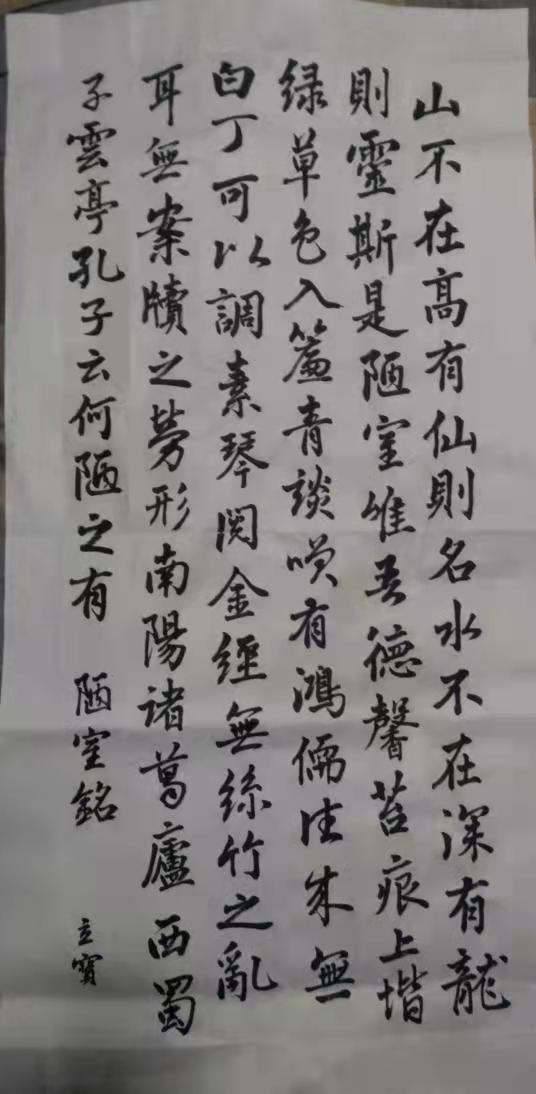 山不在高有仙則名水不在深有龍
則靈斯是陋室惟吾德馨苔痕上堦
绿草色入簾青談唉有鴻儒往来無
白丁可以調素琴閱金經無絲竹之亂
耳無案牘之勞形南陽諸葛廬西蜀
子雲亭孔子云何陋之有 陋室銘 立寳